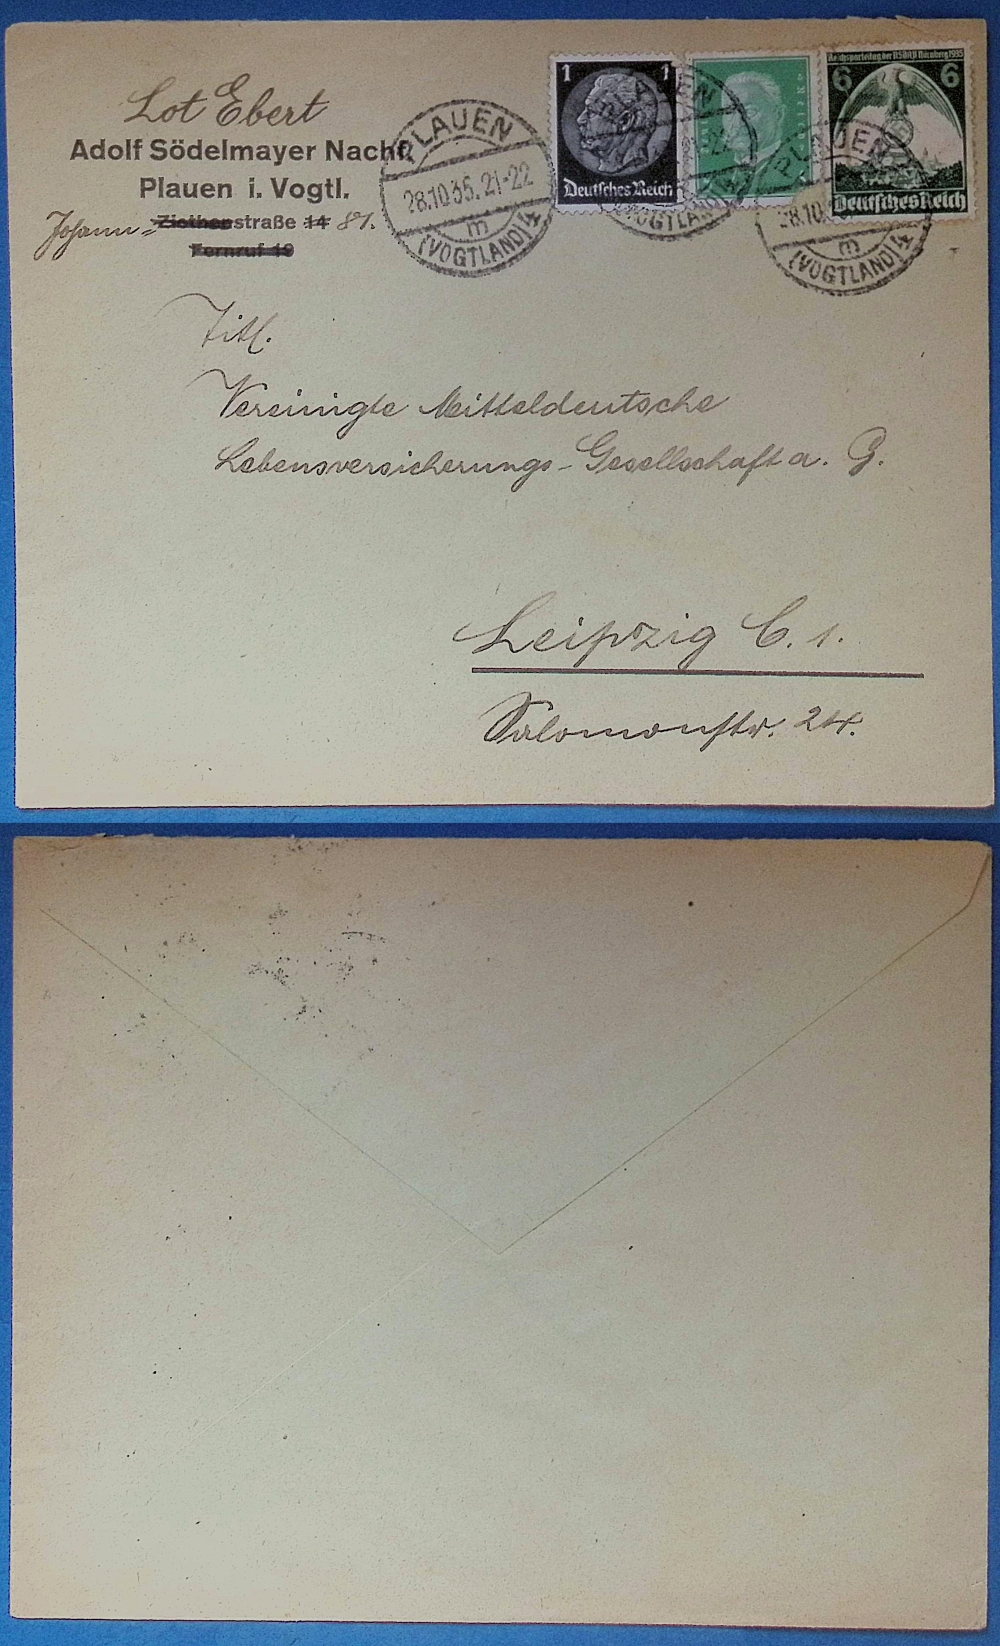 Lot Ebert
Adolf Södelmayer Nachf.
Plauen i. Vogtl.
Johann- Ziethenstraße 14 81.
Fernruf 19
PLAUEN
28.10.35. 21-22
m
(VOGTLAND) 4
1 1
Deutsches Reich
PLAUEN
(VOGTLAND)
Reichsparteitag der NSDAP Nürnberg 1935
6 6
Deutsches Reich
PLAUEN
28.10
m
(VOGTLAND) 4
Titl.
Vereinigte Mitteldeutsche
Lebensversicherungs-Gesellschaft a. G.
Leipzig C. 1.
Salomonstr. 24.